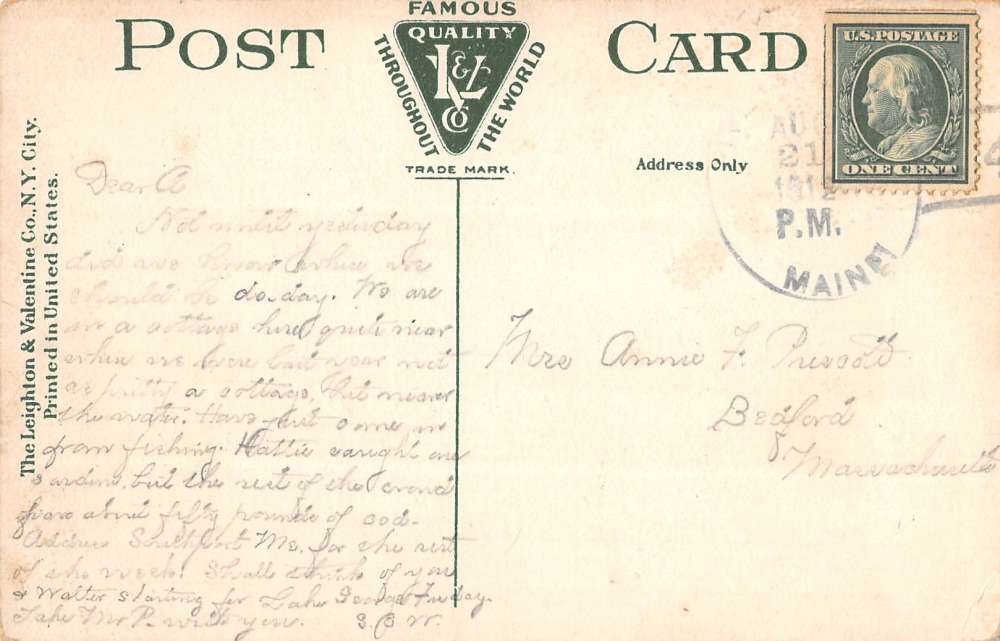 POST CARD
FAMOUS
QUALITY
THROUGHOUT THE WORLD
L & V Co
TRADE MARK.
Address Only
U.S. POSTAGE
ONE CENT
AUG
21
1912
P.M.
MAINE
The Leighton & Valentine Co., N.Y. City.
Printed in United States.
Dear A
Not until yesterday
did we know where we
should be to-day. We are
in a cottage here quite near
where we were last year not
as pretty a cottage, but nearer
the water. Have just come in
from fishing. Hattie caught one
sardine, but the rest of the crowd
about fifty pounds of cod.
Address Southport Me. for the rest
of the week. Shall think of you
& Walter starting for Lake George Friday.
Take Mr P. with you. S.B.W.
Mrs Annie F. Prescott
Bedford
Massachusetts